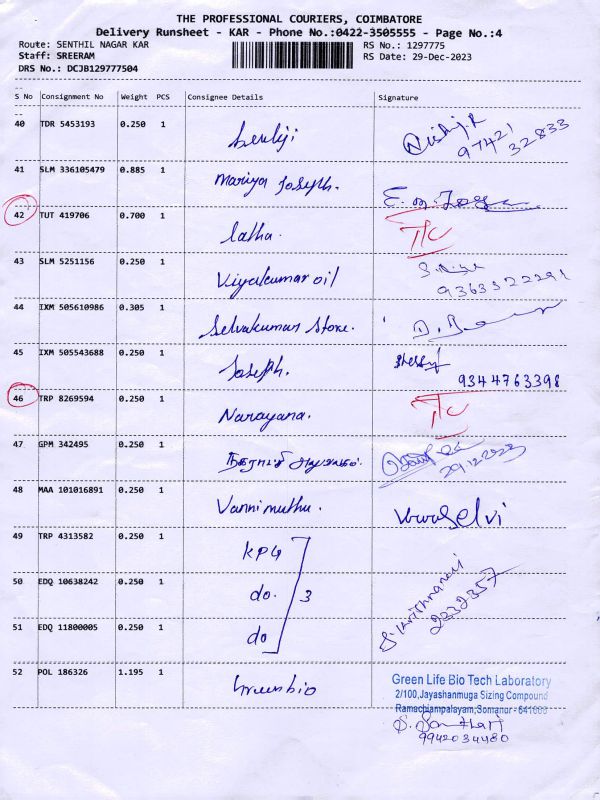 THE PROFESSIONAL COURIERS, COIMBATORE
Delivery Runsheet - KAR - Phone No.:0422-3505555 - Page No.:4
Route: SENTHIL NAGAR KAR
RS No.: 1297775
Staff: SREERAM
RS Date: 29-Dec-2023
DRS No.: DCJB129777504
S No Consignment No Weight PCS Consignee Details Signature
40 TDR 5453193 0.250 1
97421
32833
41 SLM 336105479 0.885 1 Mariya Joseph.
42 TUT 419706 0.700 1 latha.
43 SLM 5251156 0.250 1 Vijyakumar oil
9363522291
44 IXM 505610986 0.305 1 Selvakumar Store.
45 IXM 505543688 0.250 1 Joseph.
9344763398
46 TRP 8269594 0.250 1 Narayana.
47 GPM 342495 0.250 1
29/12/2023
48 MAA 101016891 0.250 1 Vanni muthu.
49 TRP 4313582 0.250 1 KPG
50 EDQ 10638242 0.250 1 do. 3
2332357
51 EDQ 11800005 0.250 1 do
52 POL 186326 1.195 1 Green bio
Green Life Bio Tech Laboratory
2/100,Jayashanmuga Sizing Compound
Ramachiampalayam,Somanur - 641668
9942034480